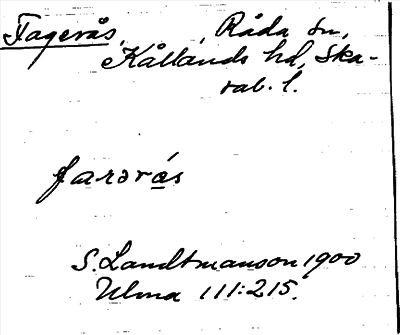 Fagerås, Råda sn,
Kållands hd, Ska-
rab. l.
farərás
S. Landtmanson 1900
Ulma 111:215.